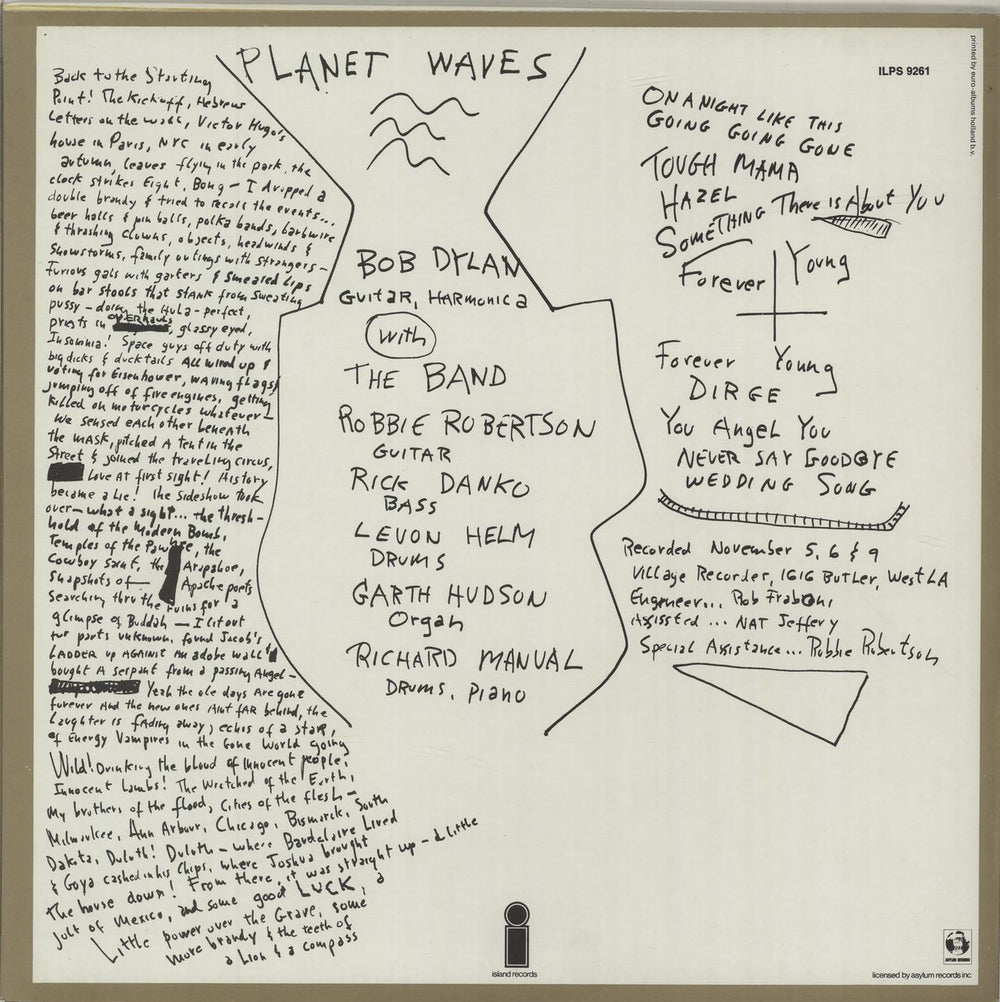 PLANET WAVES
Back to the Starting
Point! The Kickoff, Hebrew
Letters on the wall, Victor Hugo's
house in Paris, NYC in early
autumn, leaves flying in the park, the
clock strikes Eight, Bong — I dropped a
double brandy & tried to recall the events...
beer halls & pin balls, polka bands, barbwire
& thrashing clowns, objects, headwinds &
Snowstorms, family outings with strangers —
Furious gals with garters & smeared Lips
on bar stools that stank from sweating
pussy — doing the Hula — perfect,
priests in OVERHAULS, glassy eyed,
Insomnia! Space guys off duty with
big dicks & ducktails All wired up &
voting for Eisenhower, waving flags &
jumping off of fire engines, getting
killed on motorcycles whatever —
We sensed each other beneath
the MASK, pitched A tent in the
Street & joined the traveling circus,
Love At first sight! History
became a Lie! The sideshow took
over — what a sight... the thresh-
hold of the Modern Bomb,
Temples of the Pawnee, the
Cowboy saint, the Arapahoe,
Snapshots of — Apache poets
Searching thru the ruins for a
glimpse of Buddah — I lit out
for parts unknown, found Jacob's
LADDER up AGAINST an adobe wall &
bought A serpant from a passing Angel —
Yeah the ole days Are gone
forever And the new ones Aint fAR behind, the
Laughter is fading away, echos of a star,
of Energy Vampires in the Gone World going
Wild! Drinking the blood of innocent people,
Innocent Lambs! The Wretched of the Earth,
My brothers of the flood, Cities of the flesh —
Milwaukee, Ann Arbour, Chicago, Bismarck, South
Dakota, Duluth! Duluth — where Baudelaire Lived
& Goya cashed in his Chips, where Joshua brought
The house down! From there, it was straight up — a little
jolt of Mexico, and some good LUCK, a
Little power over the Grave, some
more brandy & the teeth of
a Lion & a compass
BOB DYLAN
GUITAR, HARMONICA
with
THE BAND
ROBBIE ROBERTSON
GUITAR
RICK DANKO
BASS
LEVON HELM
DRUMS
GARTH HUDSON
Organ
RICHARD MANUAL
DRUMS, PIANO
ILPS 9261
printed by euro-albums holland b.v.
ON A NIGHT LIKE THIS
GOING GOING GONE
TOUGH MAMA
HAZEL
SOMETHING There is About You
Forever Young
Forever Young
DIRGE
You Angel You
NEVER SAY GOODBYE
WEDDING SONG
Recorded November 5, 6 & 9
Village Recorder, 1616 BUTLER, West LA
Engineer... Rob Fraboni
Assissted... NAT Jeffery
Special Assistance... Robbie Robertson
island records
ASYLUM RECORDS
licensed by asylum records inc